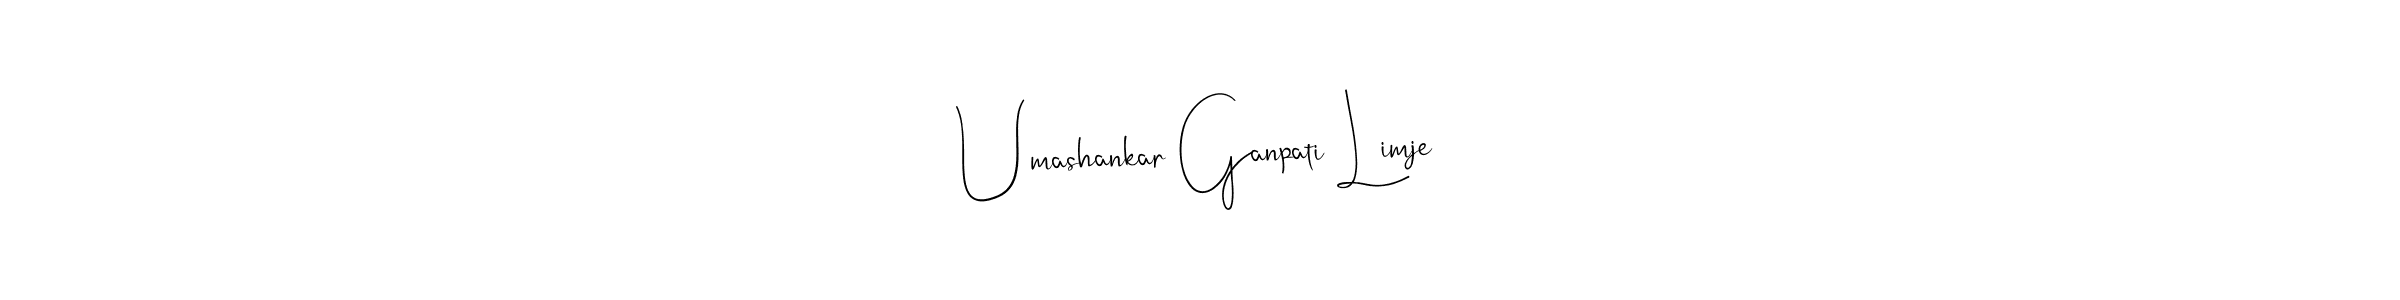 Umashankar Ganpati Limje